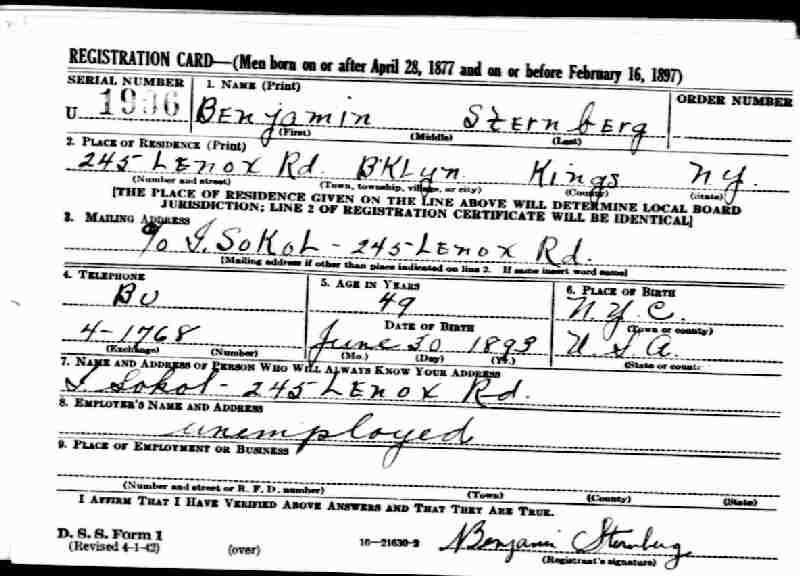 REGISTRATION CARD—(Men born on or after April 28, 1877 and on or before February 16, 1897)
SERIAL NUMBER 1. NAME (Print) ORDER NUMBER
U 1936 BENjamin STErnbErg
(First) (Middle) (Last)
2. PLACE OF RESIDENCE (Print)
245 LENOX Rd. BKLyn Kings NY.
(Number and street) (Town, township, village, or city) (County) (State)
[THE PLACE OF RESIDENCE GIVEN ON THE LINE ABOVE WILL DETERMINE LOCAL BOARD
JURISDICTION; LINE 2 OF REGISTRATION CERTIFICATE WILL BE IDENTICAL]
3. MAILING ADDRESS
c/o I. SOKOL - 245 LENOX Rd.
[Mailing address if other than place indicated on line 2. If same insert word same]
4. TELEPHONE 5. AGE IN YEARS 6. PLACE OF BIRTH
BU 49 N.Y.C.
DATE OF BIRTH (Town or county)
4-1768 June 30 1893 U.S.A.
(Exchange) (Number) (Mo.) (Day) (Yr.) (State or country
7. NAME AND ADDRESS OF PERSON WHO WILL ALWAYS KNOW YOUR ADDRESS
I Sokol - 245 LENOX Rd.
8. EMPLOYER'S NAME AND ADDRESS
unemployed
9. PLACE OF EMPLOYMENT OR BUSINESS
(Number and street or R. F. D. number) (Town) (County) (State)
I AFFIRM THAT I HAVE VERIFIED ABOVE ANSWERS AND THAT THEY ARE TRUE.
D. S. S. Form 1
(Revised 4-1-42) (over) 16—21630-2 Benjamin Sternberg
(Registrant's signature)